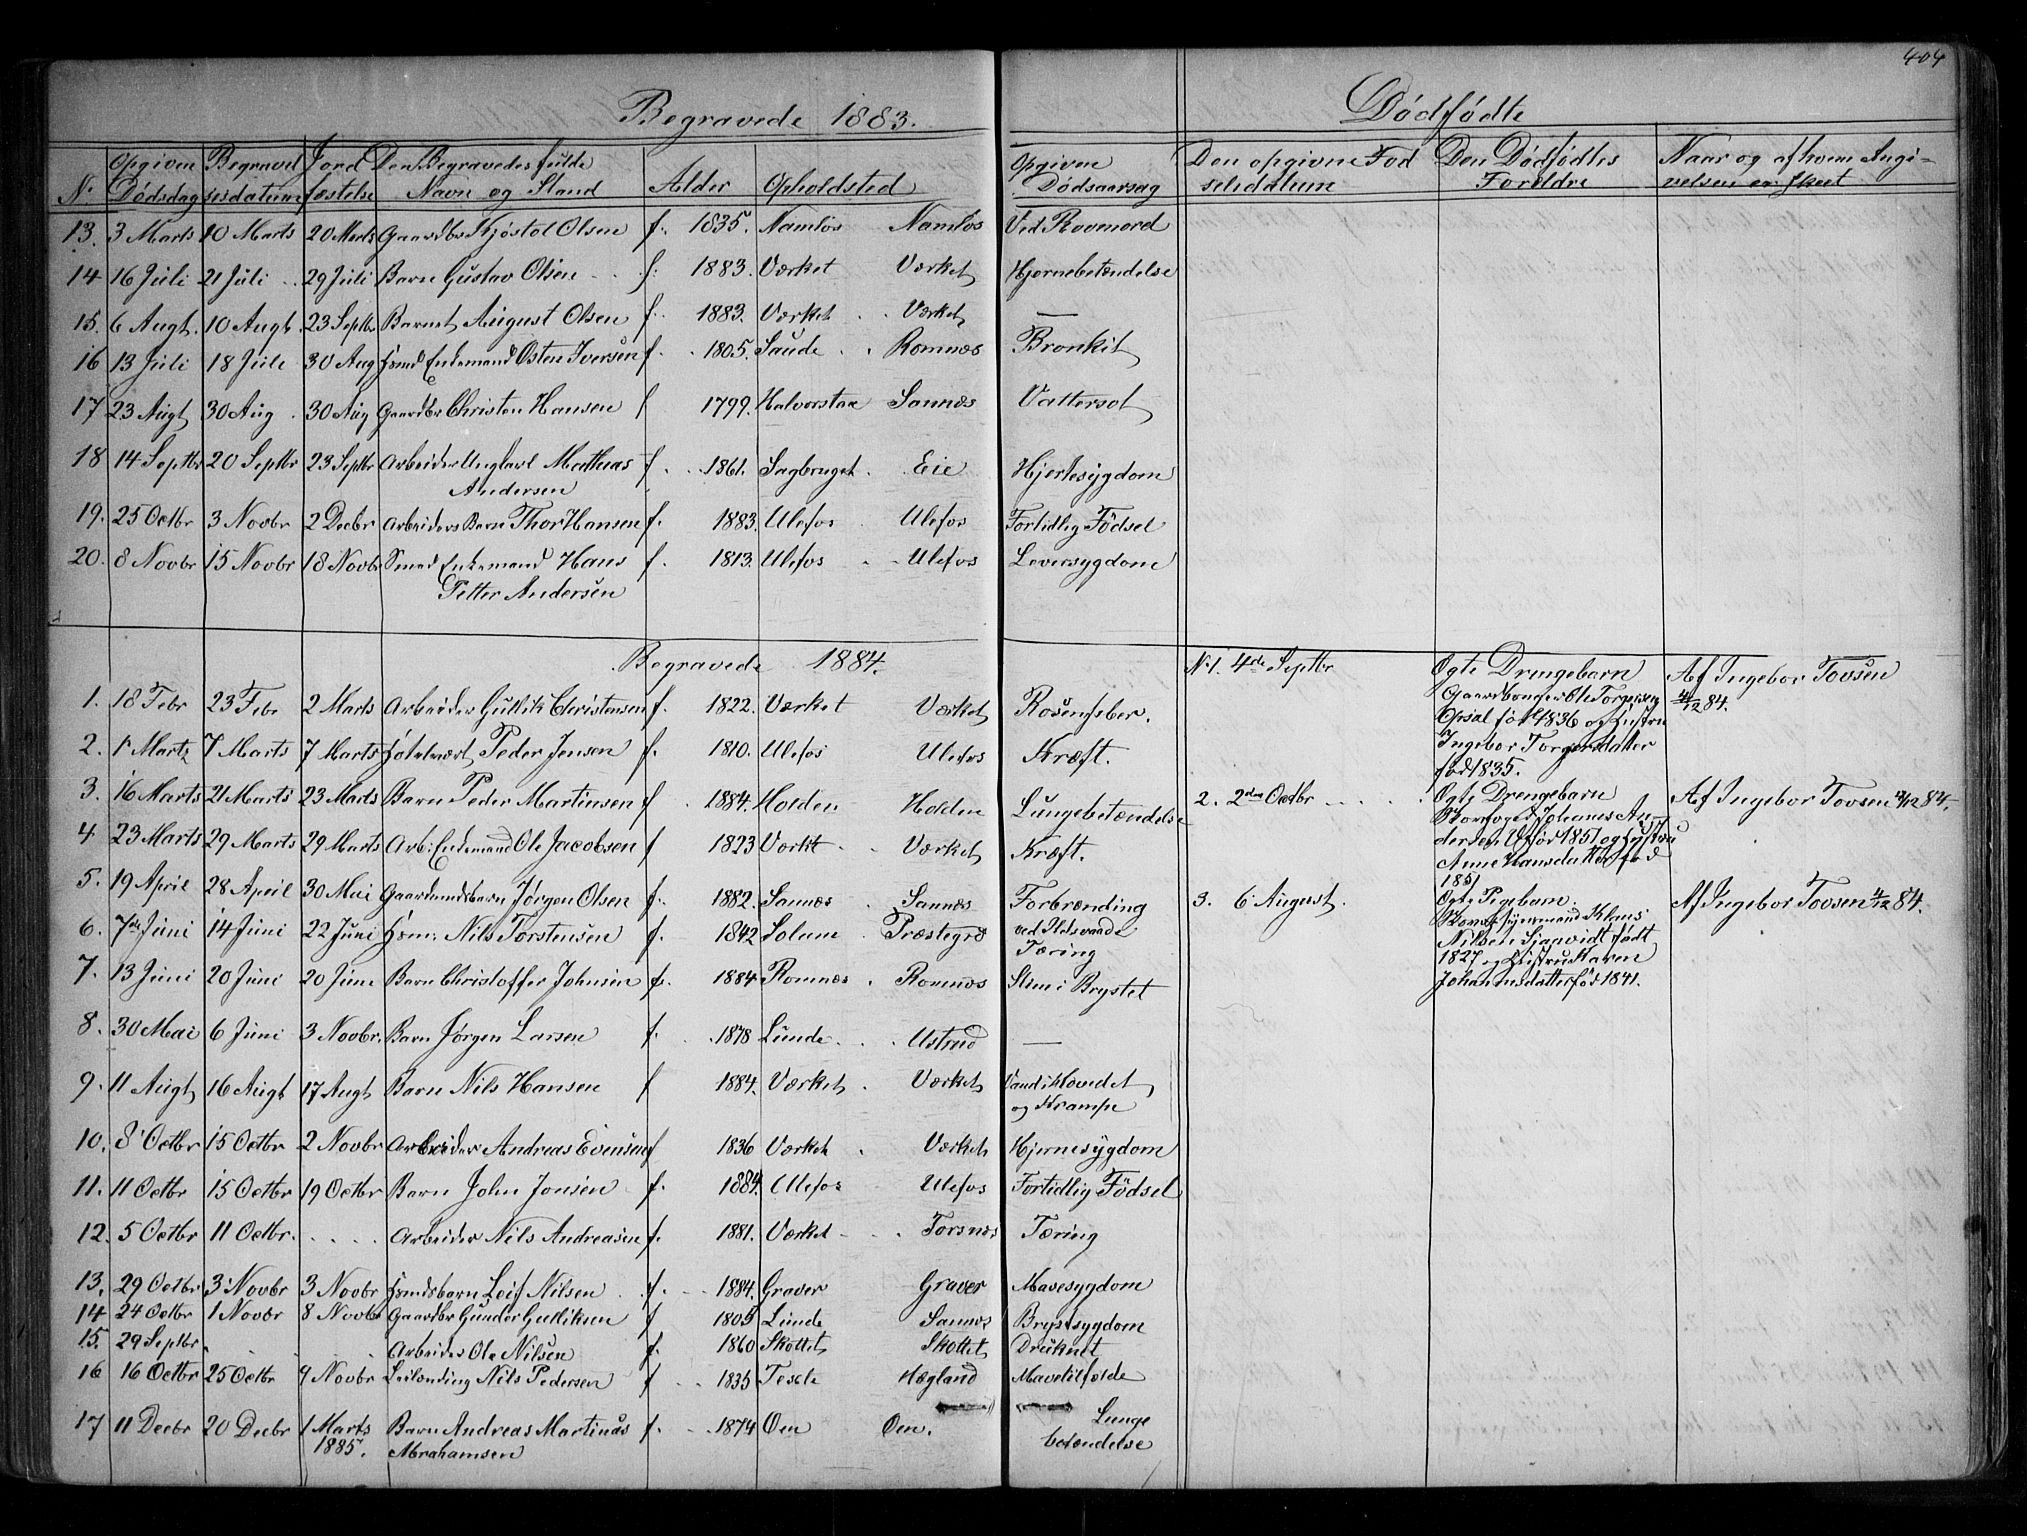 404
Begravede 1883.
Dødfødte
No. Opgiven Dødsdag Begravelsesdatum Jordfæstelse Den Begravedes fulde Navn og Stand Alder Opholdsted Opgiven Dødsaarsag Den opgivne Fødselsdatum Den Dødfødtes Forældre Naar og af hvem Angivelsen er skeet
13. 3 Marts 10 Marts 20 Marts Gaardbr Kjøstol Olsen f. 1835. Namløs Namløs Ved Rovmord
14 16 Juli 21 Juli 29 Juli Barn Gustav Olsen f. 1883. Værket Værket Hjernebetændelse
15. 6 Augt. 10 Augt. 23 Septbr Barnet August Olsen f. 1883. Værket Værket —
16 13 Juli 18 Juli 30 Aug Enkemand Osten Iversen f. 1805. Saude Romnæs Bronkit
17 23 Augt 30 Aug 30 Aug Gaardbr Christen Hansen f 1799. Halvorstaa Sannæs Vattersot
18 14 Septbr 20 Septbr 23 Septbr Arbeider Ungkarl Mathias f. 1861. Sagbruget Eie Hjertesygdom
Andersen
19. 25 Octbr 3 Novbr 2 Decbr Arbeiders Barn Thor Hansen f. 1883. Ulefos Ulefos Fortidlig Fødsel
20. 8 Novbr 15 Novbr 18 Novbr Smed Enkemand Hans f. 1813. Ulefos Ulefos Leversygdom
Petter Andersen
Begravede 1884.
1. 18 Febr 23 Febr 2 Marts Arbeider Gullik Christensen f. 1822. Værket Værket Rosenfeber.
2. 1 Marts 7 Marts 7 Marts Hotelvært Peder Jensen f. 1810. Ulefos Ulefos Kræft.
3. 16 Marts 21 Marts 23 Marts Barn Peder Martinsen f 1884. Holden Holden Lungebetændelse
4 23 Marts 29 Marts 29 Marts Arb. Enkemand Ole Jacobsen f 1823 Værket Værket Kræft.
5. 19 April 28 April 30 Mai Gaardmandsbarn Jørgen Olsen f. 1882. Sannæs Sannæs Forbrænding
ved Ildsvaade
6. 7de Juni 14 Juni 22 Juni Nils Torstensen f. 1842 Solum Præstegrd Tæring
7. 13 Juni 20 Juni 20 Juni Barn Christoffer Johnsen f. 1884 Romnæs Romnæs Slim i Brystet
8. 30 Mai 6 Juni 3 Novbr. Barn Jørgen Larsen f. 1878 Lunde Ustrud —
9. 11 Augt 16 Augt 17 Augt Barn Nils Hansen f 1884. Værket Værket Vand i Hovedet
og Krampe
10. 8 Octbr 15 Octbr 2 Novbr Arbeider Andreas Evensen f 1836 Værket Værket Hjernesygdom
11. 11 Octbr 15 Octbr 19 Octbr Barn John Jonsen f. 1884. Ulefos Ulefos Fortidlig Fødsel
12. 5 Octbr 11 Octbr. Arbeider Nils Andreasen f. 1881. Værket Torsnæs Tæring
13. 29 Octbr 3 Novbr 3 Novbr Leif Nilsen f. 1884. Graver Graver Mavesygdom
14 24 Octbr 1 Novbr 8 Novbr Gaardbr Gunder Gulliksen f 1805 Lunde Sannæs Brystsygdom
15. 29 Septbr. Arbeider Ole Nilsen f. 1860 Skottet Skottet Druknet
16 16 Octbr 25 Octbr 9 Novbr Leilending Nils Pedersen f 1835 Tesele Hægland Mavetilfælde
17 11 Decbr 20 Decbr 1 Marts Barn Andreas Martinus f. 1874 Oen Oen. Lunge
1885. Abrahamsen betændelse
No 1. 4de Septbr Ægte Drengebarn Af Ingebor Tovsen
Gaardbruger Ole Torgeisen 4/12 84.
Opsal født 1836 og Hustru
Ingebor Torgersdatter
født 1835.
2. 2den Octbr Ægte Drengebarn Af Ingebor Tovsen 4/12 84.
Johanes An-
dersen født 1851 og Hustru
Anne Hansdatter fød
1851
3. 6 August. Ægte Pigebarn. Af Ingebor Tovsen 4/12 84.
Klaus
Nilsen født
1827 og Hustru Karen
Johannesdatter fød 1841.